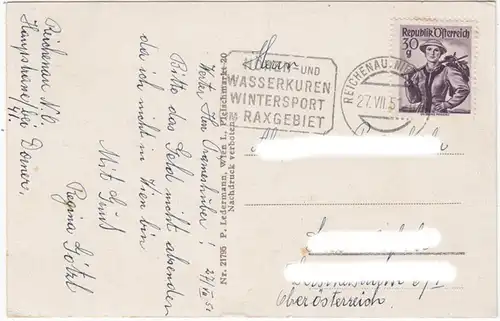 Reichenau N.Ö.
Hauptstrasse bei Dorner,
41.
27/VII 51
Bitte das Geld nicht absenden
da ich nicht in Wien bin
Mit Gruß
Regina Götzl
Nr. 21795 P. Ledermann, Wien I., Fleischmarkt 20
Nachdruck verboten
Herrn
UND
WASSERKUREN
WINTERSPORT
RAXGEBIET
REICHENAU, N
27.VII.5
Republik Österreich
30 g
Oberösterreich